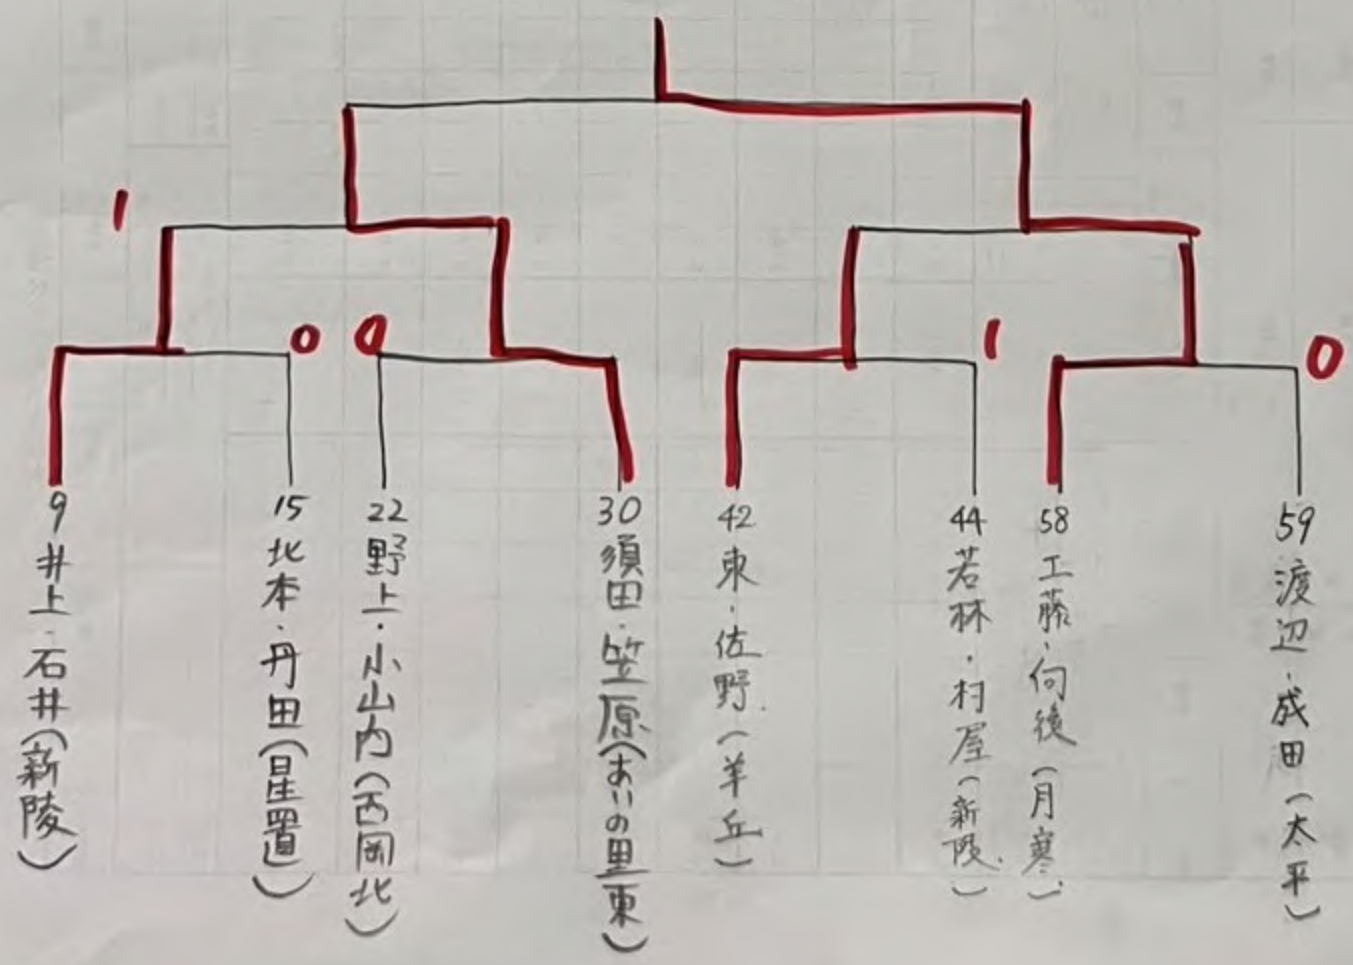 1
0
0
1
0
9 井上・石井(新陵)
15 北本・丹田(星置)
22 野上・小山内(西岡北)
30 須田・笠原(あいの里東)
42 東・佐野(羊丘)
44 若林・村屋(新陵)
58 工藤・向後(月寒)
59 渡辺・成田(太平)